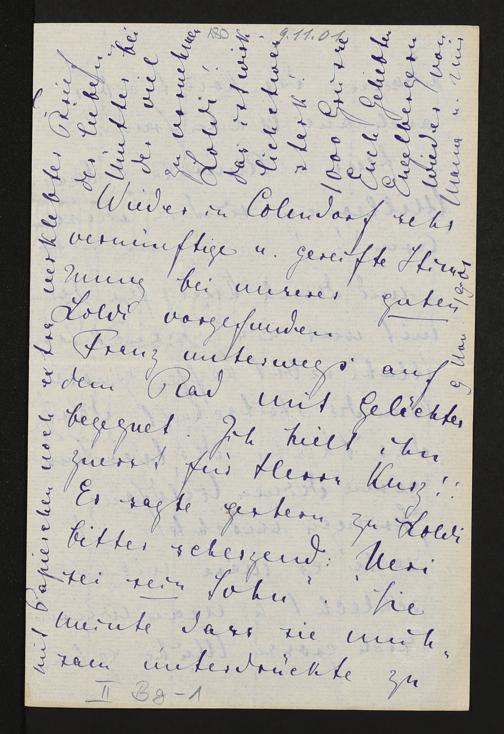 180 9.11.01
Wieder in Colendorf sehr
vernünftige u. gereifte Stim
mung bei unserer guten
Loldi vorgefunden
Franz unterwegs auf
dem Rad mit Gelächter
begegnet. Ich hielt ihn
zuerst für Herrn Kurz!!
Er sagte gestern zu Loldi
bitter scherzend: "Usi
sei sein Sohn". Sie
meinte dass sie müh-
sam unterdrückte zu
mit Papierchen noch extra verklebter Brief
der lieben
Mutter bei
der viel
zu vornehmen
Loldi!
das ist wirk
lich etwas
stark.
1000 Grüsse
Euch Geliebten
Engelbergern
wieder von
Mama u. mir
9 Nov 1901
II Bg-1